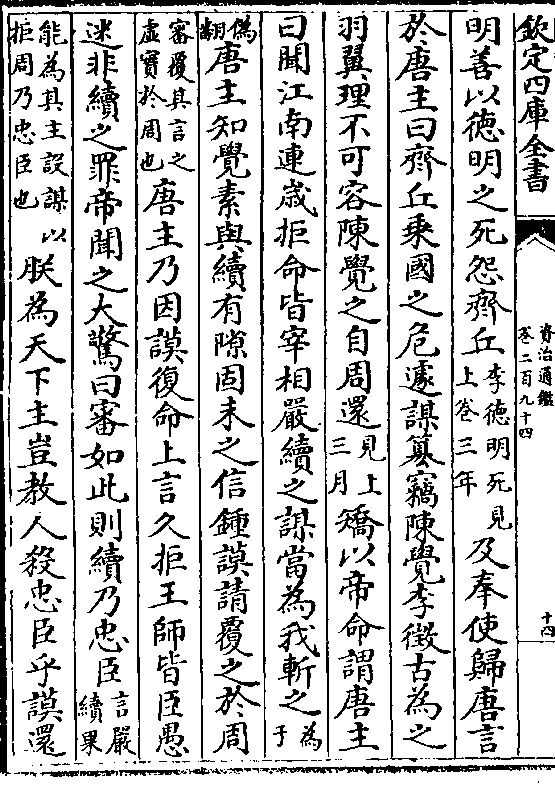 欽定四庫全書
資治通鑑
卷二百九十四
十四
明善以德明之死怨齊丘李德明死見上卷三年及奉使歸唐言
於唐主曰齊丘乗國之危遽謀簒竊陳覺李徵古為之
羽翼理不可容陳覺之自周還見上三月矯以帝命謂唐主
曰聞江南連嵗拒命皆宰相嚴續之謀當為我斬之為于
偽翻唐主知覺素與續有隙固未之信鍾謨請覆之於周
審覆其言之虚實於周也唐主乃因謨復命上言久拒王師皆臣愚
迷非續之罪帝聞之大驚曰審如此則續乃忠臣言嚴續果
能為其主設謀以拒周乃忠臣也朕為天下主豈教人殺忠臣乎謨還